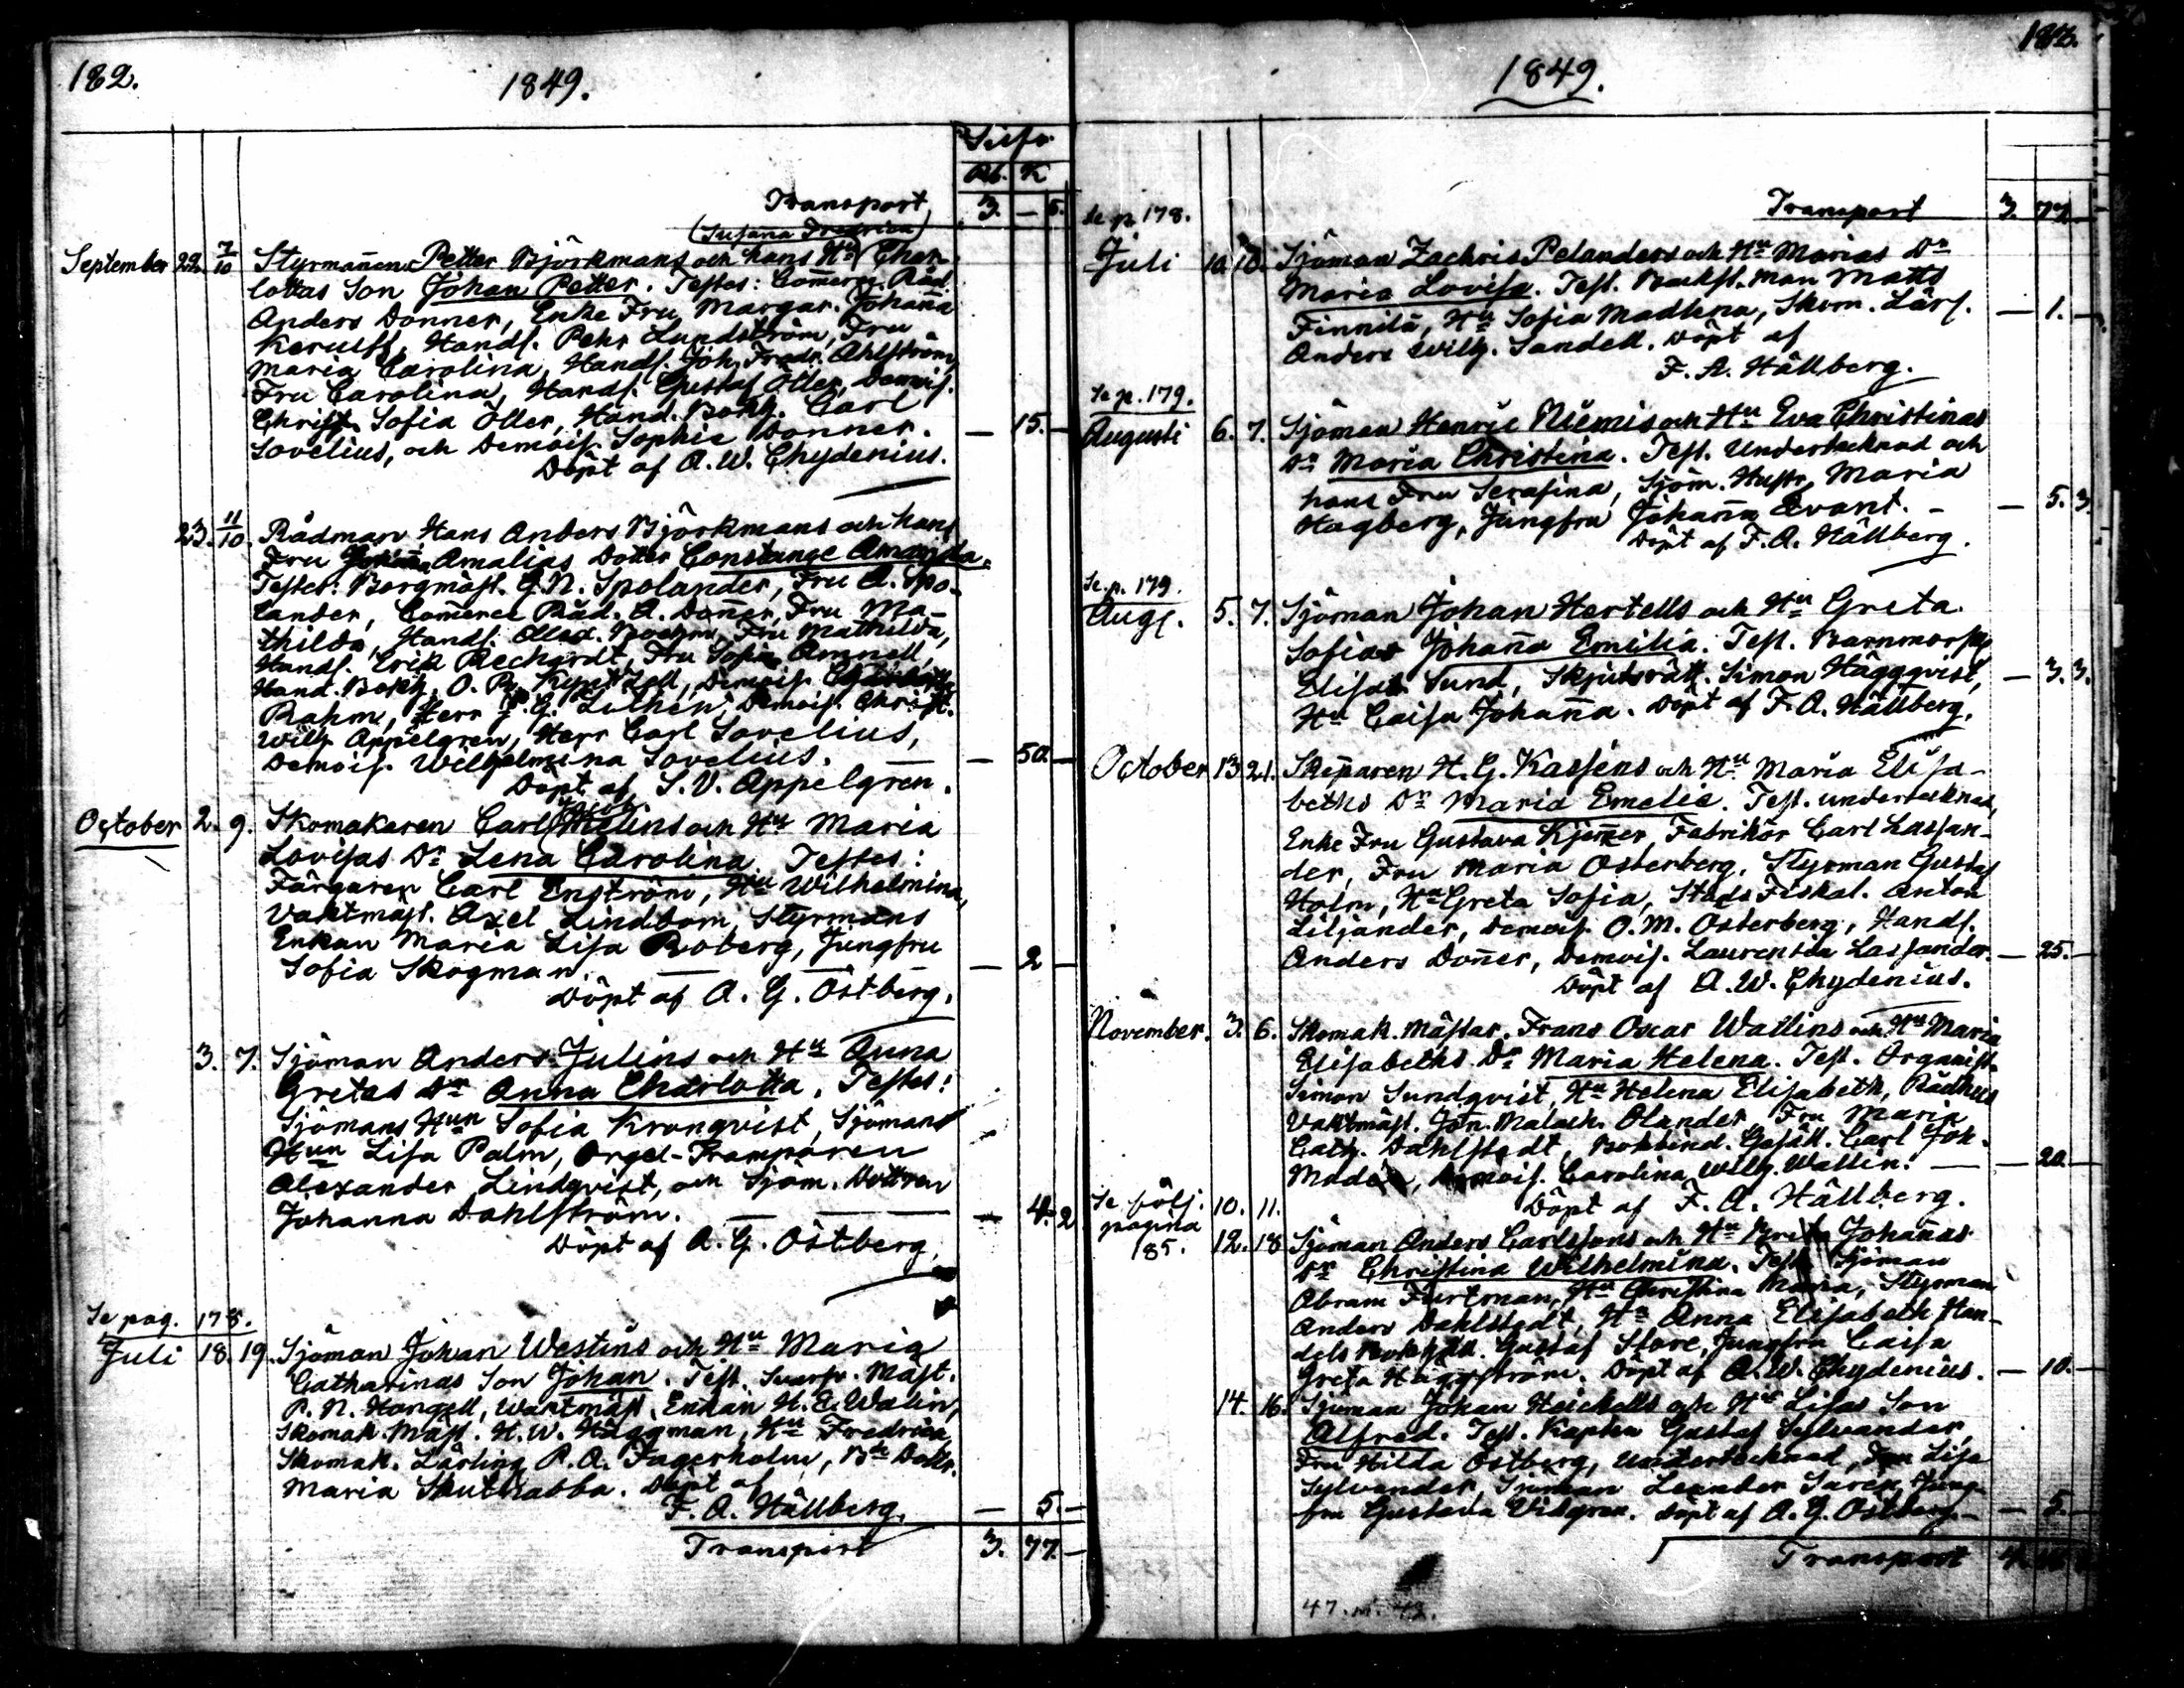 182.
1849.
Silfr
Rb. K
Transport 3. — 5.
(Susanna Fredrica)
September 22. 7/10 Styrmannen Petter Björkmans och hans Hu Char-
lottas Son Johan Petter. Testes: Commerce Råd.
Anders Donner, Enke Fru Margar. Johana
Handl. Pehr Lundström, Fru
Maria Carolina, Handl. Joh. Fredr. Ahlström,
Fru Carolina, Handl. Gustaf Öller, Demois.
Christ. Sofia Öller, Hand. Bokh. Carl
Sovelius, och Demois. Sophie Donner. — 15. —
Döpt af A. W. Chydenius.
23. 11/10 Rådman Hans Anders Björkmans och hans
Fru Johanna Amalias Dotter Constance Amanda.
Testes: Borgmäst. G. N. Spolander, Fru A. Spo-
lander, Commerce Råd. A. Donner, Fru Ma-
thilda, Handl. Boehm, Fru Mathilda,
Handl. Erik Rechardt, Fru Sofia
Hand. Bokh. O. Demois.
Rahm, Herr Lithén, Demois. Christ.
Wilh. Appelgren, Herr Carl Sovelius,
Demois. Wilhelmina Sovelius. — — 50. —
Döpt af S. V. Appelgren.
October 2. 9. Skomakaren Carl Jacob Melins och Hu Maria
Lovisas Dr Lena Carolina. Testes:
Färgaren Carl Enström, Hu Wilhelmina,
Vaktmäst. Axel Lindbom, Styrmans
Enkan Maria Lisa Roberg, Jungfru
Sofia Skogman. — — — 2 —
Döpt af A. G. Östberg.
3. 7. Sjöman Anders Julins och Hu Anna
Gretas Dr Anna Charlotta. Testes:
Sjömans Hun Sofia Kronqvist, Sjömans
Hun Lisa Palm, Orgel-Tramparen
Alexander Lindqvist, och Sjöm. Dottren
Johanna Dahlström. — — — 4. 2
Döpt af A. G. Östberg.
Se pag. 178.
Juli 18. 19. Sjöman Johan Westins och Hu Maria
Catharinas Son Johan. Test. Svarfv. Mäst.
P. N. Hongell, Waktmäst. Enkan H. E. Walin,
Skomak. Mäst. H. W. Häggman, Hu Fredrica,
Skomak. Lärling P. A. Fagerholm, Bde Dottr.
Maria Skuthabba. Döpt af
F. A. Hällberg. — 5. —
Transport 3. 77. —
183.
1849.
Se p. 178.
Transport 3. 77. —
Juli 10. 10. Sjöman Zachris Pelanders och Hu Marias Dr
Maria Lovisa. Test. Backst. man Matts
Finnilä, Hu Sofia Madlena, Skom. Lärl. — 1. —
Anders Wilh. Sandell. Döpt af
F. A. Hällberg.
Se p. 179.
Augusti 6. 7. Sjöman Henric Niemis och Hu Eva Christinas
Dr Maria Christina. Test. Undertecknad och
hans Fru Serafina, Sjöm. Hustr. Maria
Hagberg, Jungfru Johanna Evant. — — 5. 3.
Döpt af F. A. Hällberg.
Se p. 179.
Aug. 5. 7. Sjöman Johan Hertells och Hu Greta
Sofias Johanna Emilia. Test. Barnmorsk.
Elisab. Sund, Skjutsrätt. Simon Häggqvist, — 3. 3.
Hu Caisa Johanna. Döpt af F. A. Hällberg.
October 13. 21. Skepparen H. G. Kasséns och Hu Maria Elisa-
beths Dr Maria Emelie. Test. undertecknad,
Enke Fru Gustava Kjemmer, Fabrikör Carl Lassan-
der, Fru Maria Österberg, Styrman Gustaf
Holm, Hu Greta Sofia, Stads Fiskal. Anton
Liljander, Demois. O. M. Österberg, Handl.
Anders Donner, Demois. Laurentia Lassander. — 25. —
Döpt af A. W. Chydenius.
November. 3. 6. Skomak. Mästar. Frans Oscar Wallins och Hu Maria
Elisabeths Dr Maria Helena. Test. Organist.
Simon Sundqvist, Hu Helena Elisabeth, Rådhus
Vaktmäst. Joh. Malach. Olander, Fru Maria
Cath. Dahlstedt, Bokbind. Gesäll. Carl Joh.
Demois. Carolina Wilh. Wallin. — — 20. —
Se följ. 10. 11. Döpt af F. A. Hällberg.
pagina
185. 12. 18. Sjöman Anders Carlssons och Hu Greta Johannas
Dr Christina Wilhelmina. Test. Sjöman
Abram Furtman, Hu Christina Maria, Styrman
Anders Dahlstedt, Hu Anna Elisabeth, Han-
dels Bokhåll. Gustaf Store, Jungfru Caisa
Greta Häggström. Döpt af A. W. Chydenius. — 10. —
14. 16. Sjöman Johan Heickells och Hu Lisas Son
Alfred. Test. Kapten Gustaf Sylvander,
Fru Hilda Östberg, undertecknad, Fru Lisa
Sylvander, Sjöman Leander Saren, Jung-
fru Gustava Vidgren. Döpt af A. G. Östberg. — — 5. —
Transport 4.
47. m. 42.